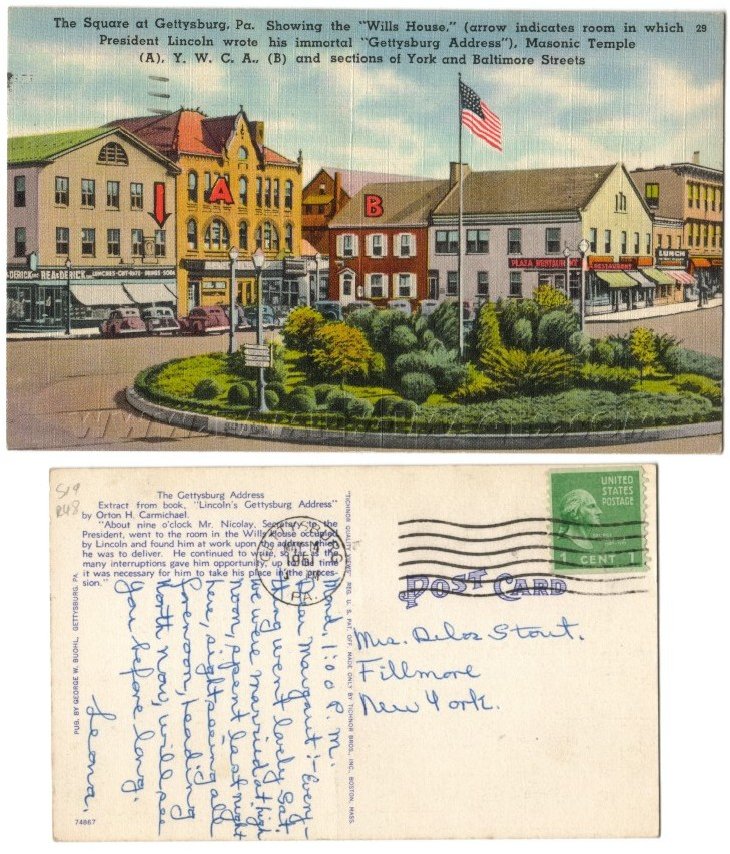 The Square at Gettysburg, Pa. Showing the "Wills House," (arrow indicates room in which 29
President Lincoln wrote his immortal "Gettysburg Address"), Masonic Temple
(A), Y. W. C. A., (B) and sections of York and Baltimore Streets
A
B
REA & DERICK LUNCHES-CUT-RATE-DRUGS-SODA
PLAZA RESTAURANT
RESTAURANT
LUNCH
S19
R48
The Gettysburg Address
Extract from book, "Lincoln's Gettysburg Address"
by Orton H. Carmichael.
"About nine o'clock Mr. Nicolay, Secretary to the
President, went to the room in the Wills House occupied
by Lincoln and found him at work upon the address which
he was to deliver. He continued to write, so far as the
many interruptions gave him opportunity, up to the time
it was necessary for him to take his place in the proces-
sion."
PA.
Mond. 1:00 P.M.
Dear Margaret:- Every-
thing went lovely Sat.
We were married at high
noon, spent last night
here, sightseeing all
forenoon, heading
North now, will see
you before long.
Leona.
PUB. BY GEORGE W. BUOHL, GETTYSBURG, PA.
74867
"TICHNOR QUALITY VIEWS," REG. U. S. PAT. OFF. MADE ONLY BY TICHNOR BROS., INC., BOSTON, MASS.
UNITED
STATES
POSTAGE
1 CENT 1
POST CARD
Mrs. Delos Stout.
Fillmore
New York.